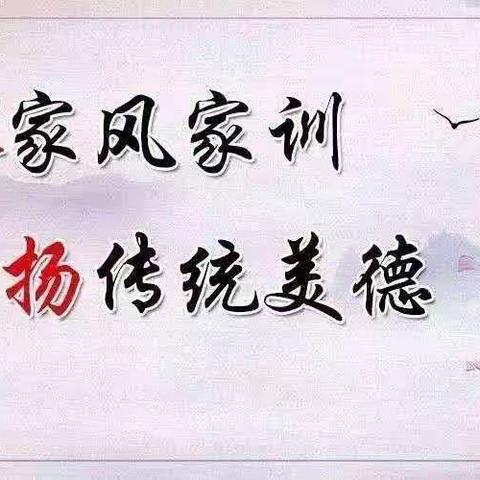 家风家训
扬传统美德